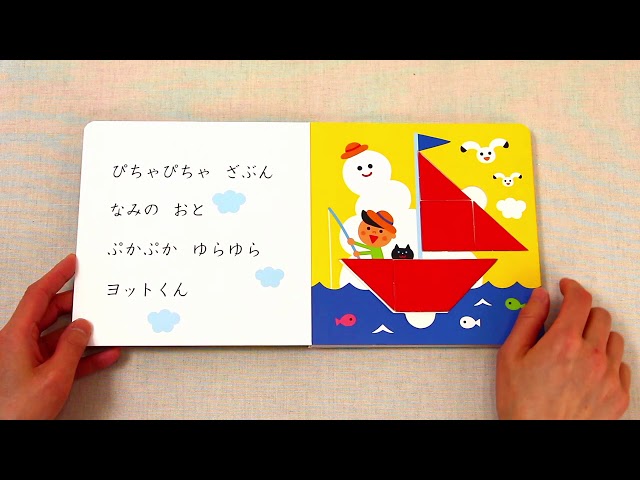 ぴちゃぴちゃ ざぶん
なみの おと
ぷかぷか ゆらゆら
ヨットくん